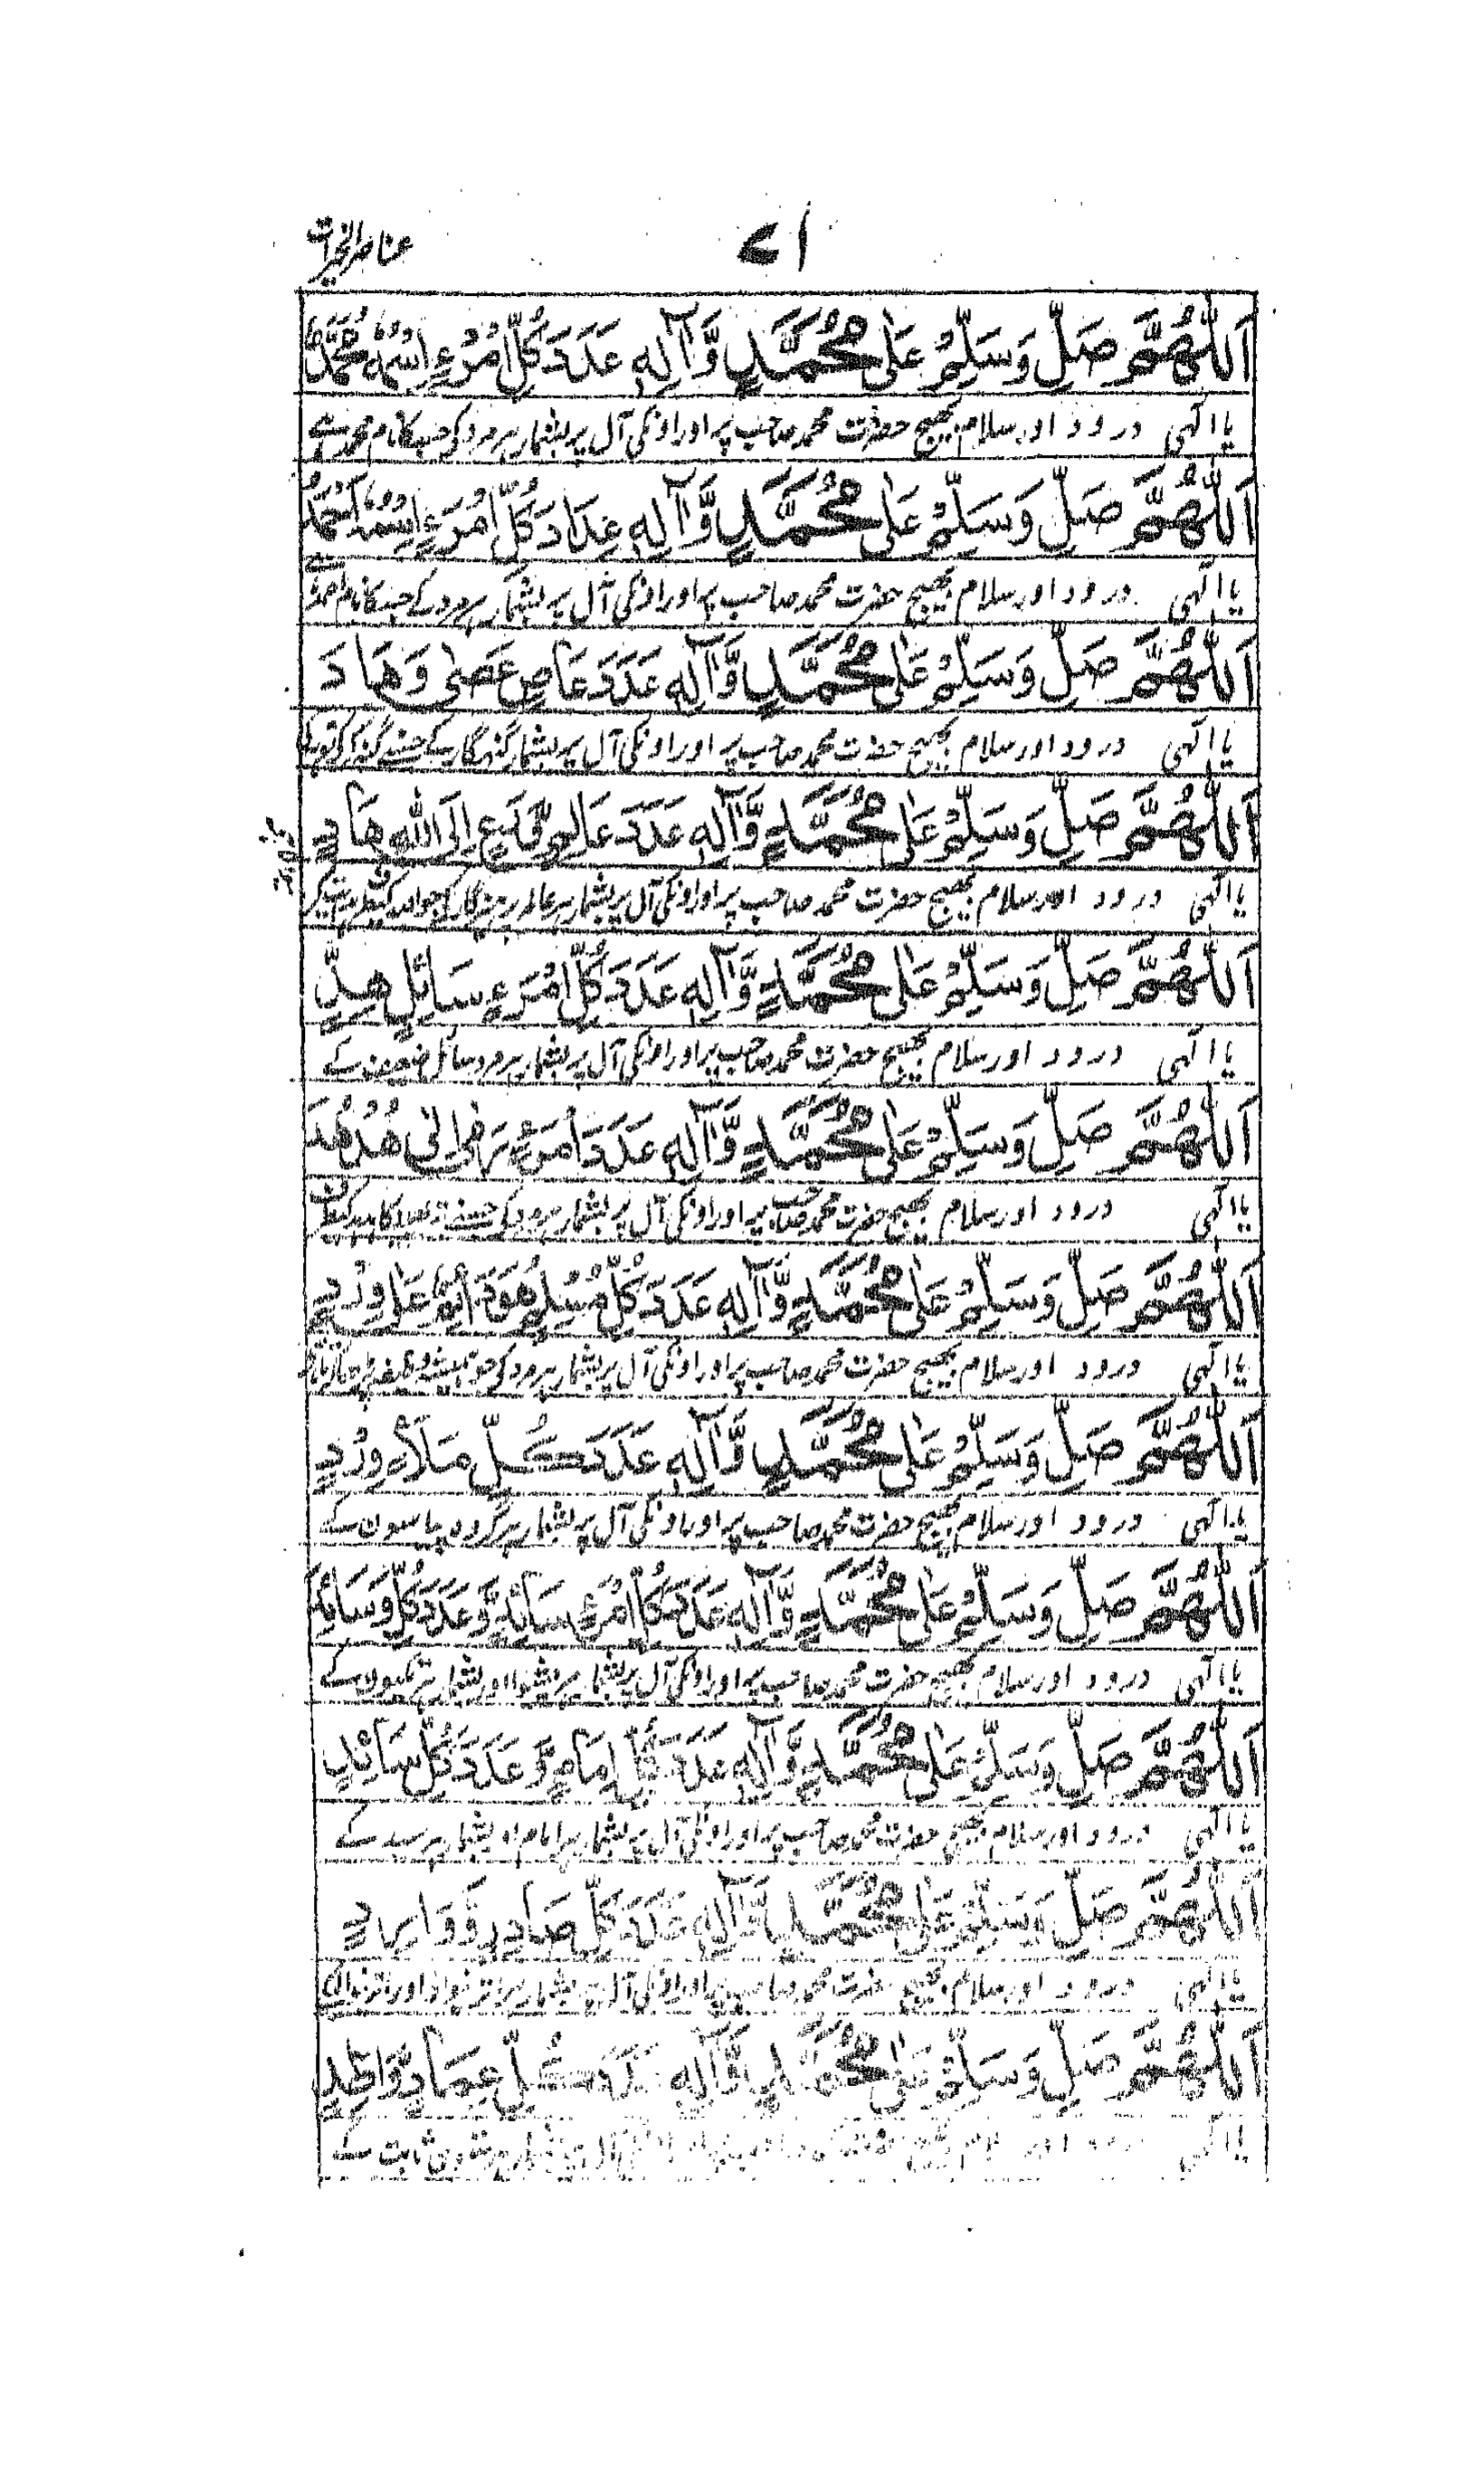 عناصر الخیرات
۷۱
اَللّٰهُمَّ صَلِّ وَسَلِّمْ عَلٰی مُحَمَّدٍ وَّآلِهٖ عَدَدَ كُلِّ امْرُءٍ اِسْمُهٗ مُحَمَّدٌ
یا الٰہی درود اور سلام بھیج حضرت محمد صاحب پر اور اونکی آل پر بشمار ہر مرد کی جسکا نام محمد ہے
اَللّٰهُمَّ صَلِّ وَسَلِّمْ عَلٰی مُحَمَّدٍ وَّآلِهٖ عَدَدَ كُلِّ امْرَءٍ اِسْمُهٗ اَحْمَدُ
یا الٰہی درود اور سلام بھیج حضرت محمد صاحب پر اور اونکی آل پر بشمار ہر مرد کے جسکا نام احمد ہے
اَللّٰهُمَّ صَلِّ وَسَلِّمْ عَلٰی مُحَمَّدٍ وَّآلِهٖ عَدَدَ عَاصٍ عَصٰی وَهَادَ
یا الٰہی درود اور سلام بھیج حضرت محمد صاحب پر اور اونکی آل پر بشمار گنہگار کے جسنے گنہ کر کی توبہ کی
اَللّٰهُمَّ صَلِّ وَسَلِّمْ عَلٰی مُحَمَّدٍ وَّآلِهٖ عَدَدَ عَالِمٍ اِلَی اللّٰهِ هَادٍ
یا الٰہی درود اور سلام بھیج حضرت محمد صاحب پر اور اونکی آل پر بشمار ہر عالم پرہیزگار کی جو اللہ کیطرف
اَللّٰهُمَّ صَلِّ وَسَلِّمْ عَلٰی مُحَمَّدٍ وَّآلِهٖ عَدَدَ كُلِّ امْرَءٍ سَائِلٍ هِدٍّ
یا الٰہی درود اور سلام بھیج حضرت محمد صاحب پر اور اونکی آل پر بشمار ہر مرد سائل ضعیف کے
اَللّٰهُمَّ صَلِّ وَسَلِّمْ عَلٰی مُحَمَّدٍ وَّآلِهٖ عَدَدَ امْرَءٍ هُدْهُدَ
یا الٰہی درود اور سلام بھیج حضرت محمد صاحب پر اور اونکی آل پر بشمار ہر مرد کی جسنے
اَللّٰهُمَّ صَلِّ وَسَلِّمْ عَلٰی مُحَمَّدٍ وَّآلِهٖ عَدَدَ كُلِّ مُسْلِمٍ هُوَ دَائِمٌ عَلٰی وِرْدٍ
یا الٰہی درود اور سلام بھیج حضرت محمد صاحب پر اور اونکی آل پر بشمار ہر مرد کی جو ہمیشہ وظیفہ
اَللّٰهُمَّ صَلِّ وَسَلِّمْ عَلٰی مُحَمَّدٍ وَّآلِهٖ عَدَدَ كُلِّ مَلَاءٍ وِرْدٍ
یا الٰہی درود اور سلام بھیج حضرت محمد صاحب پر اور اونکی آل پر بشمار ہر گروہ پیاسون کے
اَللّٰهُمَّ صَلِّ وَسَلِّمْ عَلٰی مُحَمَّدٍ وَّآلِهٖ عَدَدَ كُلِّ امْرَءٍ سَائِدٍ وَّعَدَدَ كُلِّ وَسَائِدَ
یا الٰہی درود اور سلام بھیج حضرت محمد صاحب پر اور اونکی آل پر بشمار ہر پیشوا اور بشمار ہر تکیون کے
اَللّٰهُمَّ صَلِّ وَسَلِّمْ عَلٰی مُحَمَّدٍ وَّآلِهٖ عَدَدَ كُلِّ اِمَامٍ وَّعَدَدَ كُلِّ سَائِدٍ
یا الٰہی درود اور سلام بھیج حضرت محمد صاحب پر اور اونکی آل پر بشمار ہر امام اور بشمار ہر سید کے
اَللّٰهُمَّ صَلِّ وَسَلِّمْ عَلٰی مُحَمَّدٍ وَّآلِهٖ عَدَدَ كُلِّ صَادِرٍ وَّوَارِدٍ
یا الٰہی درود اور سلام بھیج حضرت محمد صاحب پر اور اونکی آل پر بشمار ہر
اَللّٰهُمَّ صَلِّ وَسَلِّمْ عَلٰی مُحَمَّدٍ وَّآلِهٖ عَدَدَ كُلِّ عِمَادٍ
یا الٰہی درود اور ثابت کے